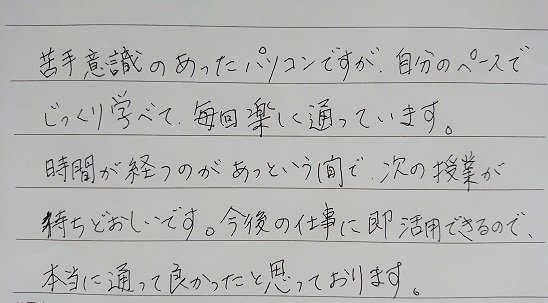 苦手意識のあったパソコンですが、自分のペースで
じっくり学べて、毎回楽しく通っています。
時間が経つのがあっという間で、次の授業が
待ちどおしいです。今後の仕事に即活用できるので、
本当に通って良かったと思っております。